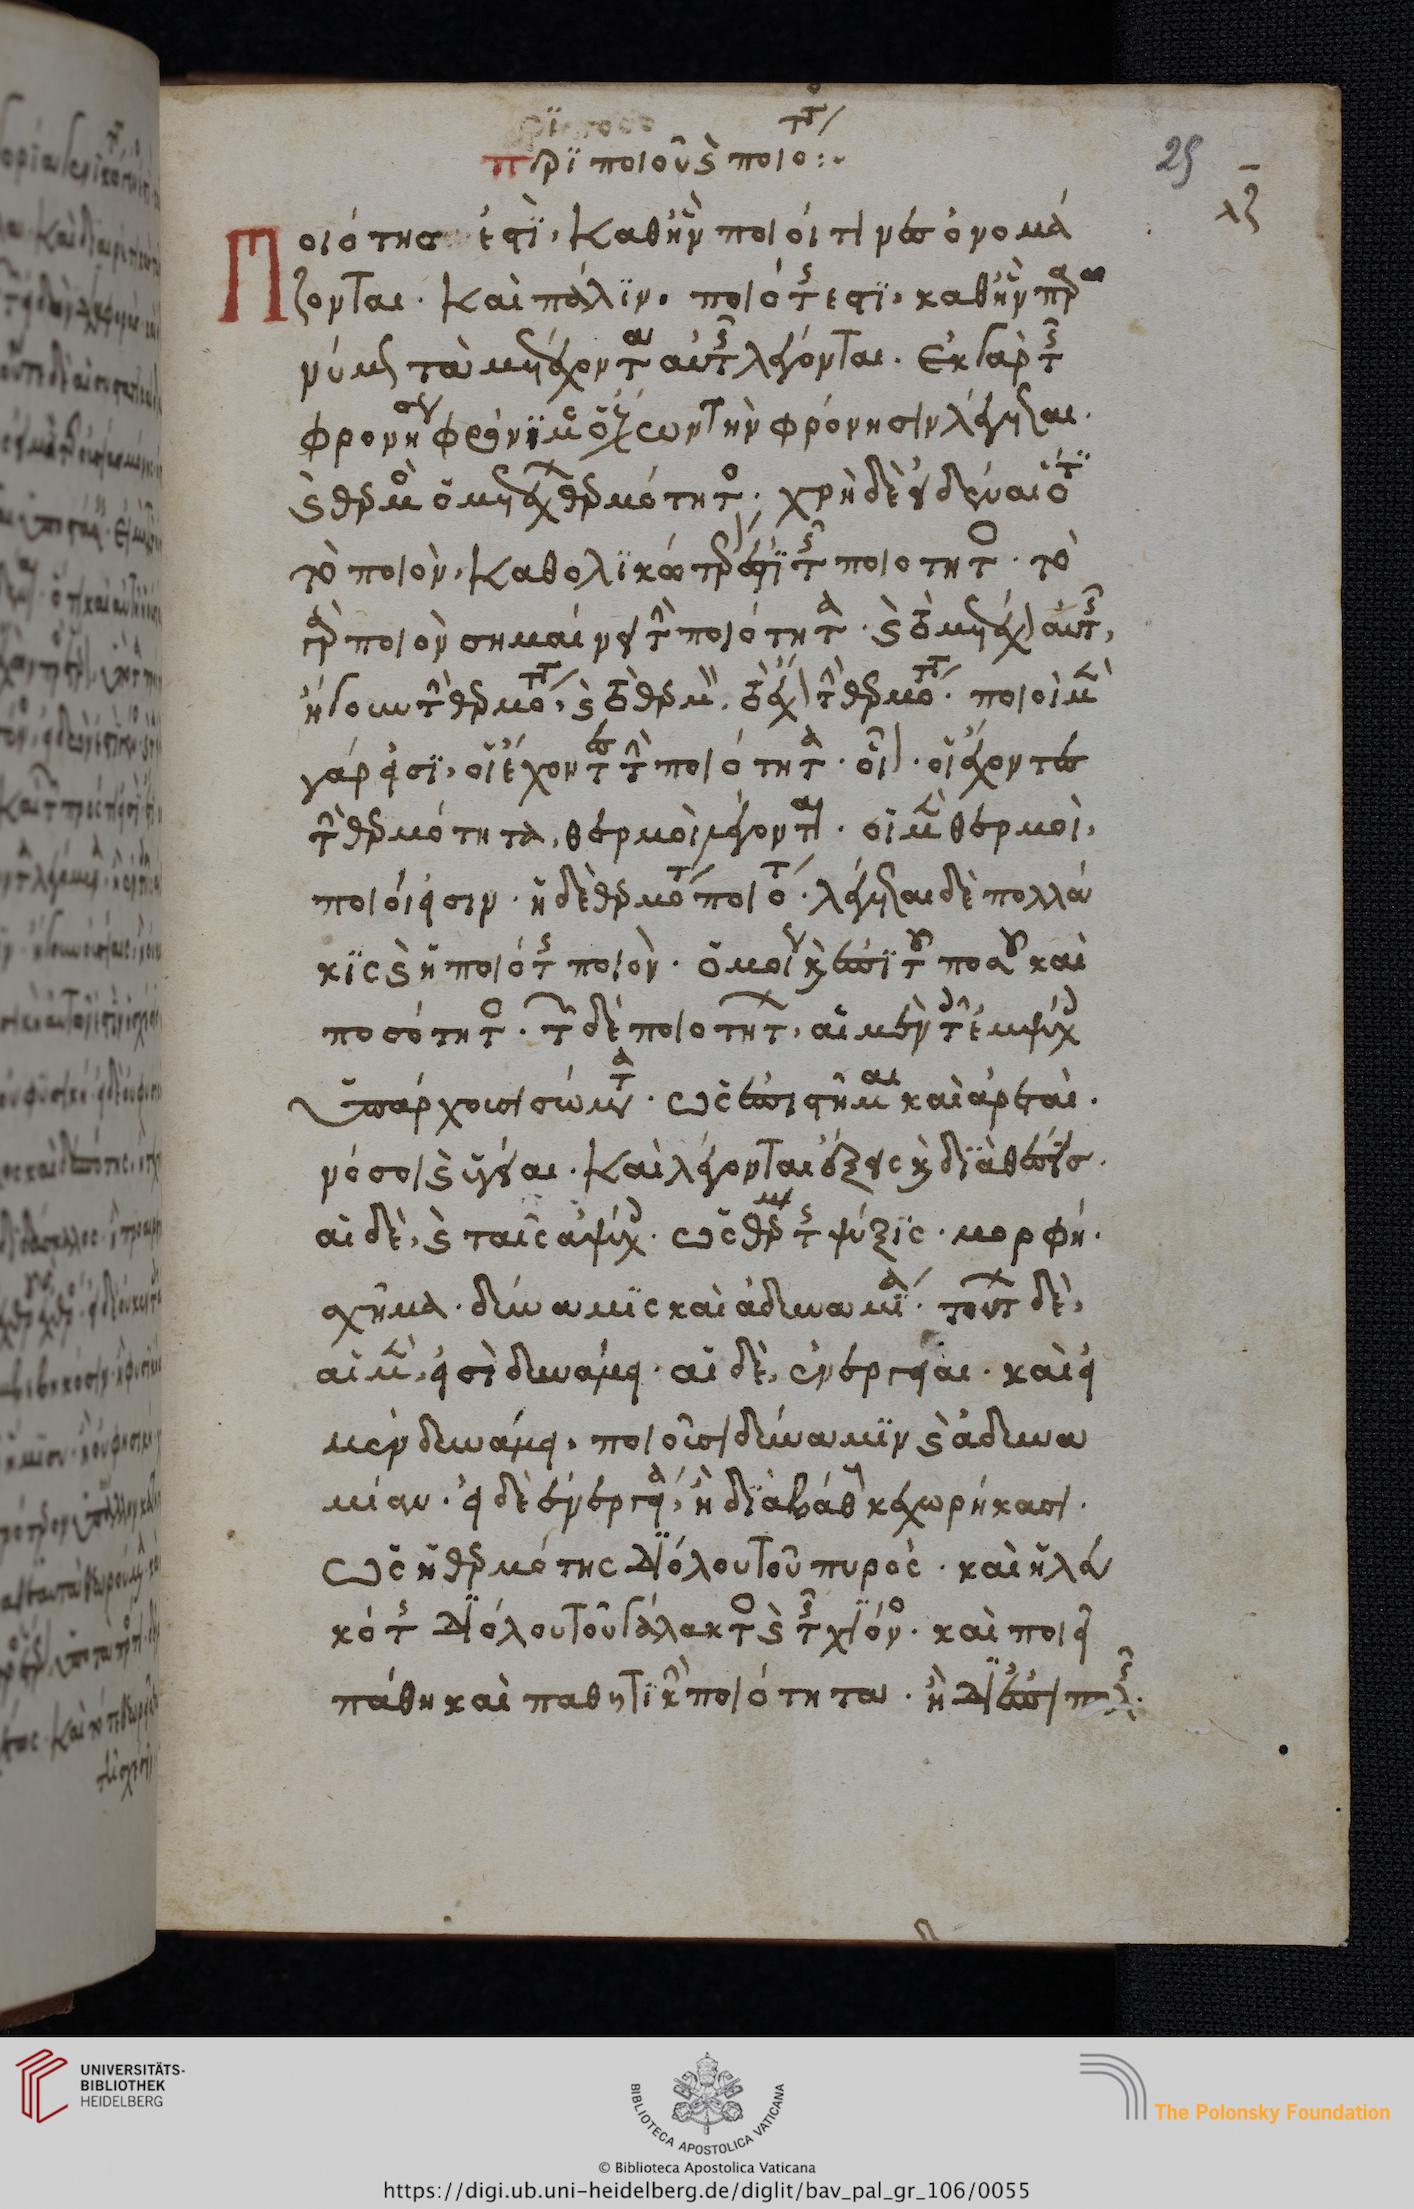 περὶ ποιοῦ καὶ ποιότητος
25
λζ
Ποιότης ἐστὶ, καθ' ἣν ποιοί τινες ὀνομά
ζονται. καὶ πάλιν, ποιότης ἐστὶ, καθ' ἣν παρω
νύμως τὰ μετέχοντα αὐτῆς λέγονται. ἐκ γὰρ τῆς
φρονήσεως φρόνιμος ὁ ἔχων τὴν φρόνησιν λέγεται.
καὶ θερμὸς ὁ μετέχων θερμότητος. χρὴ δὲ εἰδέναι ὅτι
τὸ ποιὸν, καθολικώτερόν ἐστι τῆς ποιότητος. τὸ
γὰρ ποιὸν σημαίνει τὴν ποιότητα. καὶ τὸ μετέχον αὐτῆς,
ἤγουν τὴν θερμότητα, καὶ τὸ θερμὸν, τὸ ἔχον τὴν θερμότητα. ποιοὶ μὲν
γάρ εἰσι, οἱ ἔχοντες τὴν ποιότητα. οἷον. οἱ ἔχοντες
τὴν θερμότητα, θερμοὶ λέγονται. οἱ μὲν θερμοὶ,
ποιοί εἰσιν. ἡ δὲ θερμότης ποιότης. λέγεται δὲ πολλά
κις καὶ ἡ ποιότης ποιὸν. ὁμοίως καὶ ἐπὶ τοῦ ποσοῦ καὶ
ποσότητος. τῶν δὲ ποιοτήτων, αἱ μὲν τοῖς ἐμψύχοις
ὑπάρχουσι σώμασιν. ὡς ἐπιστῆμαι καὶ ἀρεταὶ.
νόσοι καὶ ὑγεῖαι. καὶ λέγονται ἕξεις καὶ διαθέσεις.
αἱ δὲ, καὶ ταῖς ἀψύχοις. ὡς θερμότης ψύξις. μορφή.
σχῆμα. δύναμις καὶ ἀδυναμία. τούτων δὲ,
αἱ μὲν, εἰσὶ δυνάμει. αἱ δὲ, ἐνεργείαι. καὶ εἰ
μὲν δυνάμει, ποιοῦσι δύναμιν καὶ ἀδυνα
μίαν. εἰ δὲ ἐνεργείᾳ, ἢ διὰ βάθους κεχωρήκασι.
ὡς ἡ θερμότης δι' ὅλου τοῦ πυρὸς. καὶ ἡ λευ
κότης δι' ὅλου τοῦ γάλακτος καὶ τῆς χιόνος. καὶ ποιεῖ
πάθη καὶ παθητικὴν ποιότητα. ἢ δι' ἐπιπολῆς.
UNIVERSITÄTS-
BIBLIOTHEK
HEIDELBERG
BIBLIOTECA APOSTOLICA VATICANA
The Polonsky Foundation
© Biblioteca Apostolica Vaticana
https://digi.ub.uni-heidelberg.de/diglit/bav_pal_gr_106/0055